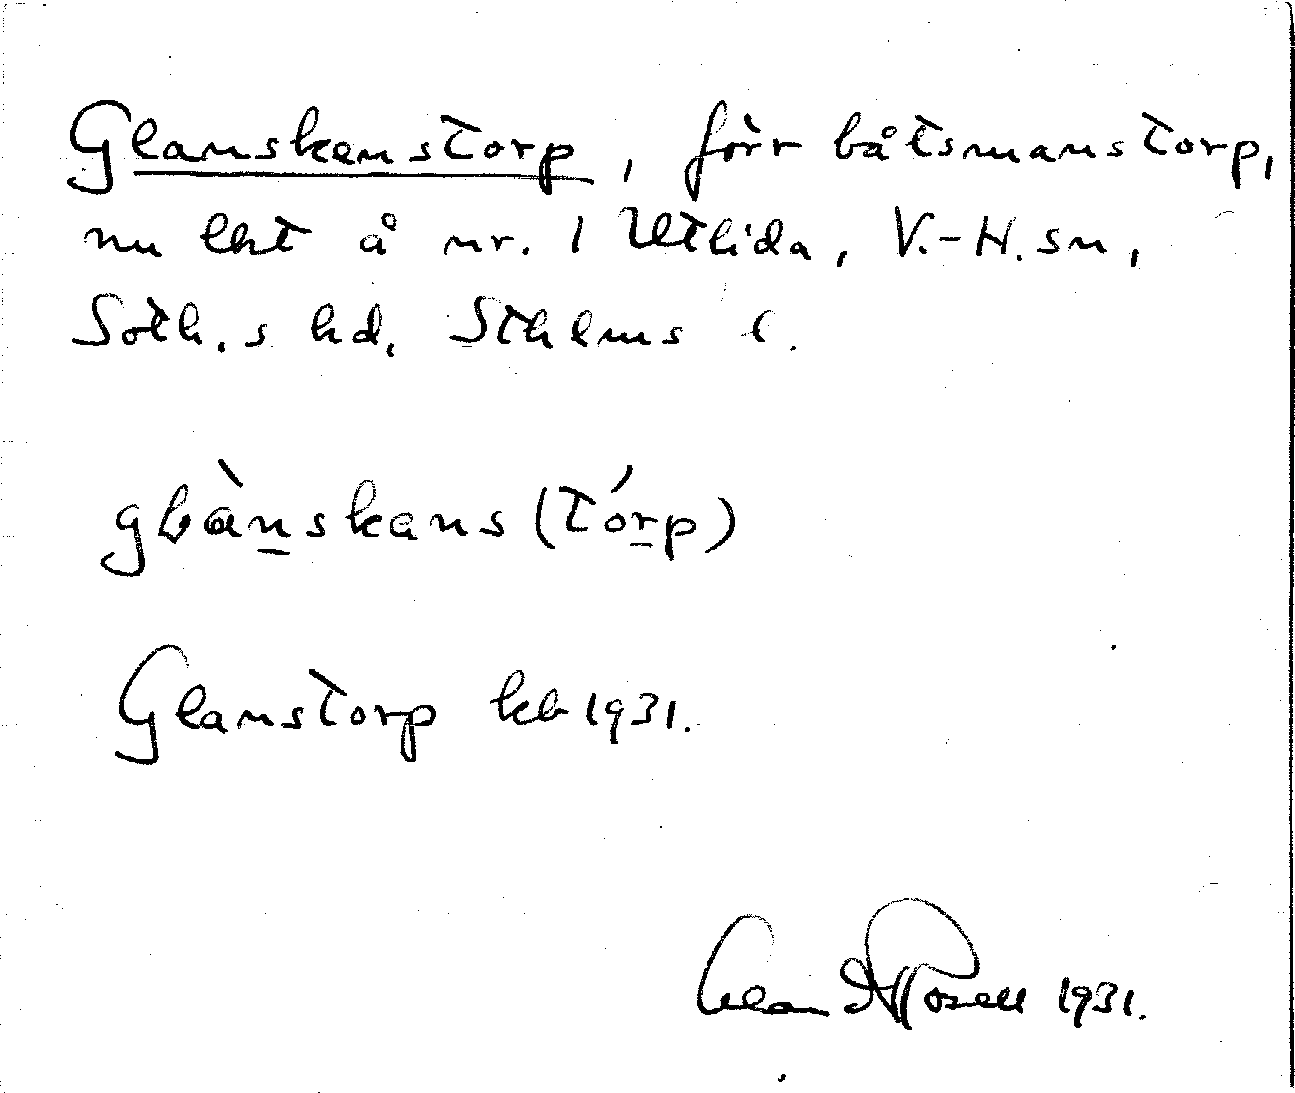 Glanskenstorp, förr båtsmanstorp,
nu lht å nr. 1 Utlida, V.-H. sn,
Soth.s hd, Sthlms l.
glànskans (tórp)
Glanstorp kb 1931.
1931.